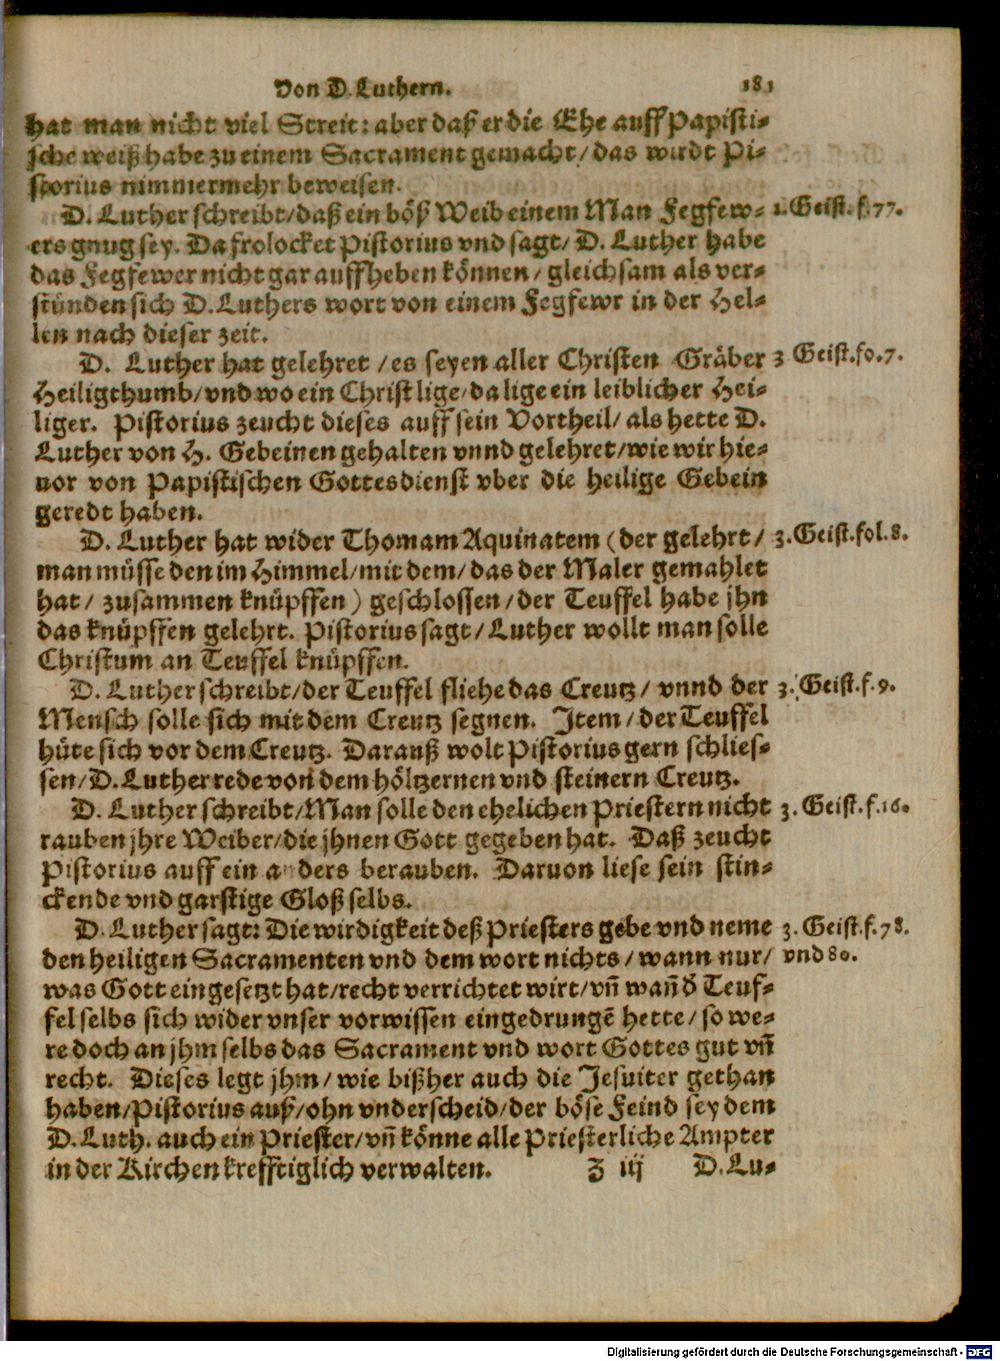 Von D. Luthern. 181
hat man nicht viel Streit: aber daß er die Ehe auff Papisti-
sche weiß habe zu einem Sacrament gemacht/ das wirdt Pi-
storius nimmermehr beweisen.
D. Luther schreibt/ daß ein böß Weib einem Man Fegfew- 1. Geist. f. 77.
ers gnug sey. Da frolocket Pistorius vnd sagt/ D. Luther habe
das Fegfewer nicht gar auffheben können/ gleichsam als ver-
stünden sich D. Luthers wort von einem Fegfewr in der Hel-
len nach dieser zeit.
D. Luther hat gelehret/ es seyen aller Christen Gräber 3 Geist. fo. 7.
Heiligthumb/ vnd wo ein Christ lige/ da lige ein leiblicher Hei-
liger. Pistorius zeucht dieses auff sein Vortheil/ als hette D.
Luther von H. Gebeinen gehalten vnnd gelehret/ wie wir hie-
uor von Papistischen Gottesdienst vber die heilige Gebein
geredt haben.
D. Luther hat wider Thomam Aquinatem (der gelehrt/ 3. Geist. fol. 8.
man müsse den im Himmel/ mit dem/ das der Maler gemahlet
hat/ zusammen knüpffen) geschlossen/ der Teuffel habe jhn
das knüpffen gelehrt. Pistorius sagt/ Luther wollt man solle
Christum an Teuffel knüpffen.
D. Luther schreibt/ der Teuffel fliehe das Creutz/ vnnd der 3. Geist. f. 9.
Mensch solle sich mit dem Creutz segnen. Item/ der Teuffel
hüte sich vor dem Creutz. Darauß wolt Pistorius gern schlies-
sen/ D. Luther rede von dem höltzernen vnd steinern Creutz.
D. Luther schreibt/ Man solle den ehelichen Priestern nicht 3. Geist. f. 16.
rauben jhre Weiber/ die jhnen Gott gegeben hat. Daß zeucht
Pistorius auff ein anders berauben. Daruon liese sein stin-
ckende vnd garstige Gloß selbs.
D. Luther sagt: Die wirdigkeit deß Priesters gebe vnd neme 3. Geist. f. 78.
den heiligen Sacramenten vnd dem wort nichts/ wann nur/ vnd 80.
was Gott eingesetzt hat/ recht verrichtet wirt/ vñ wañ d̄ Teuf-
fel selbs sich wider vnser vorwissen eingedrungē hette/ so we-
re doch an jhm selbs das Sacrament vnd wort Gottes gut vñ
recht. Dieses legt jhm/ wie bißher auch die Jesuiter gethan
haben/ Pistorius auß/ ohn vnderscheid/ der böse Feind sey dem
D. Luth. auch ein Priester/ vñ könne alle Priesterliche Ampter
in der Kirchen krefftiglich verwalten. Z iij D. Lu-
Digitalisierung gefördert durch die Deutsche Forschungsgemeinschaft - DFG